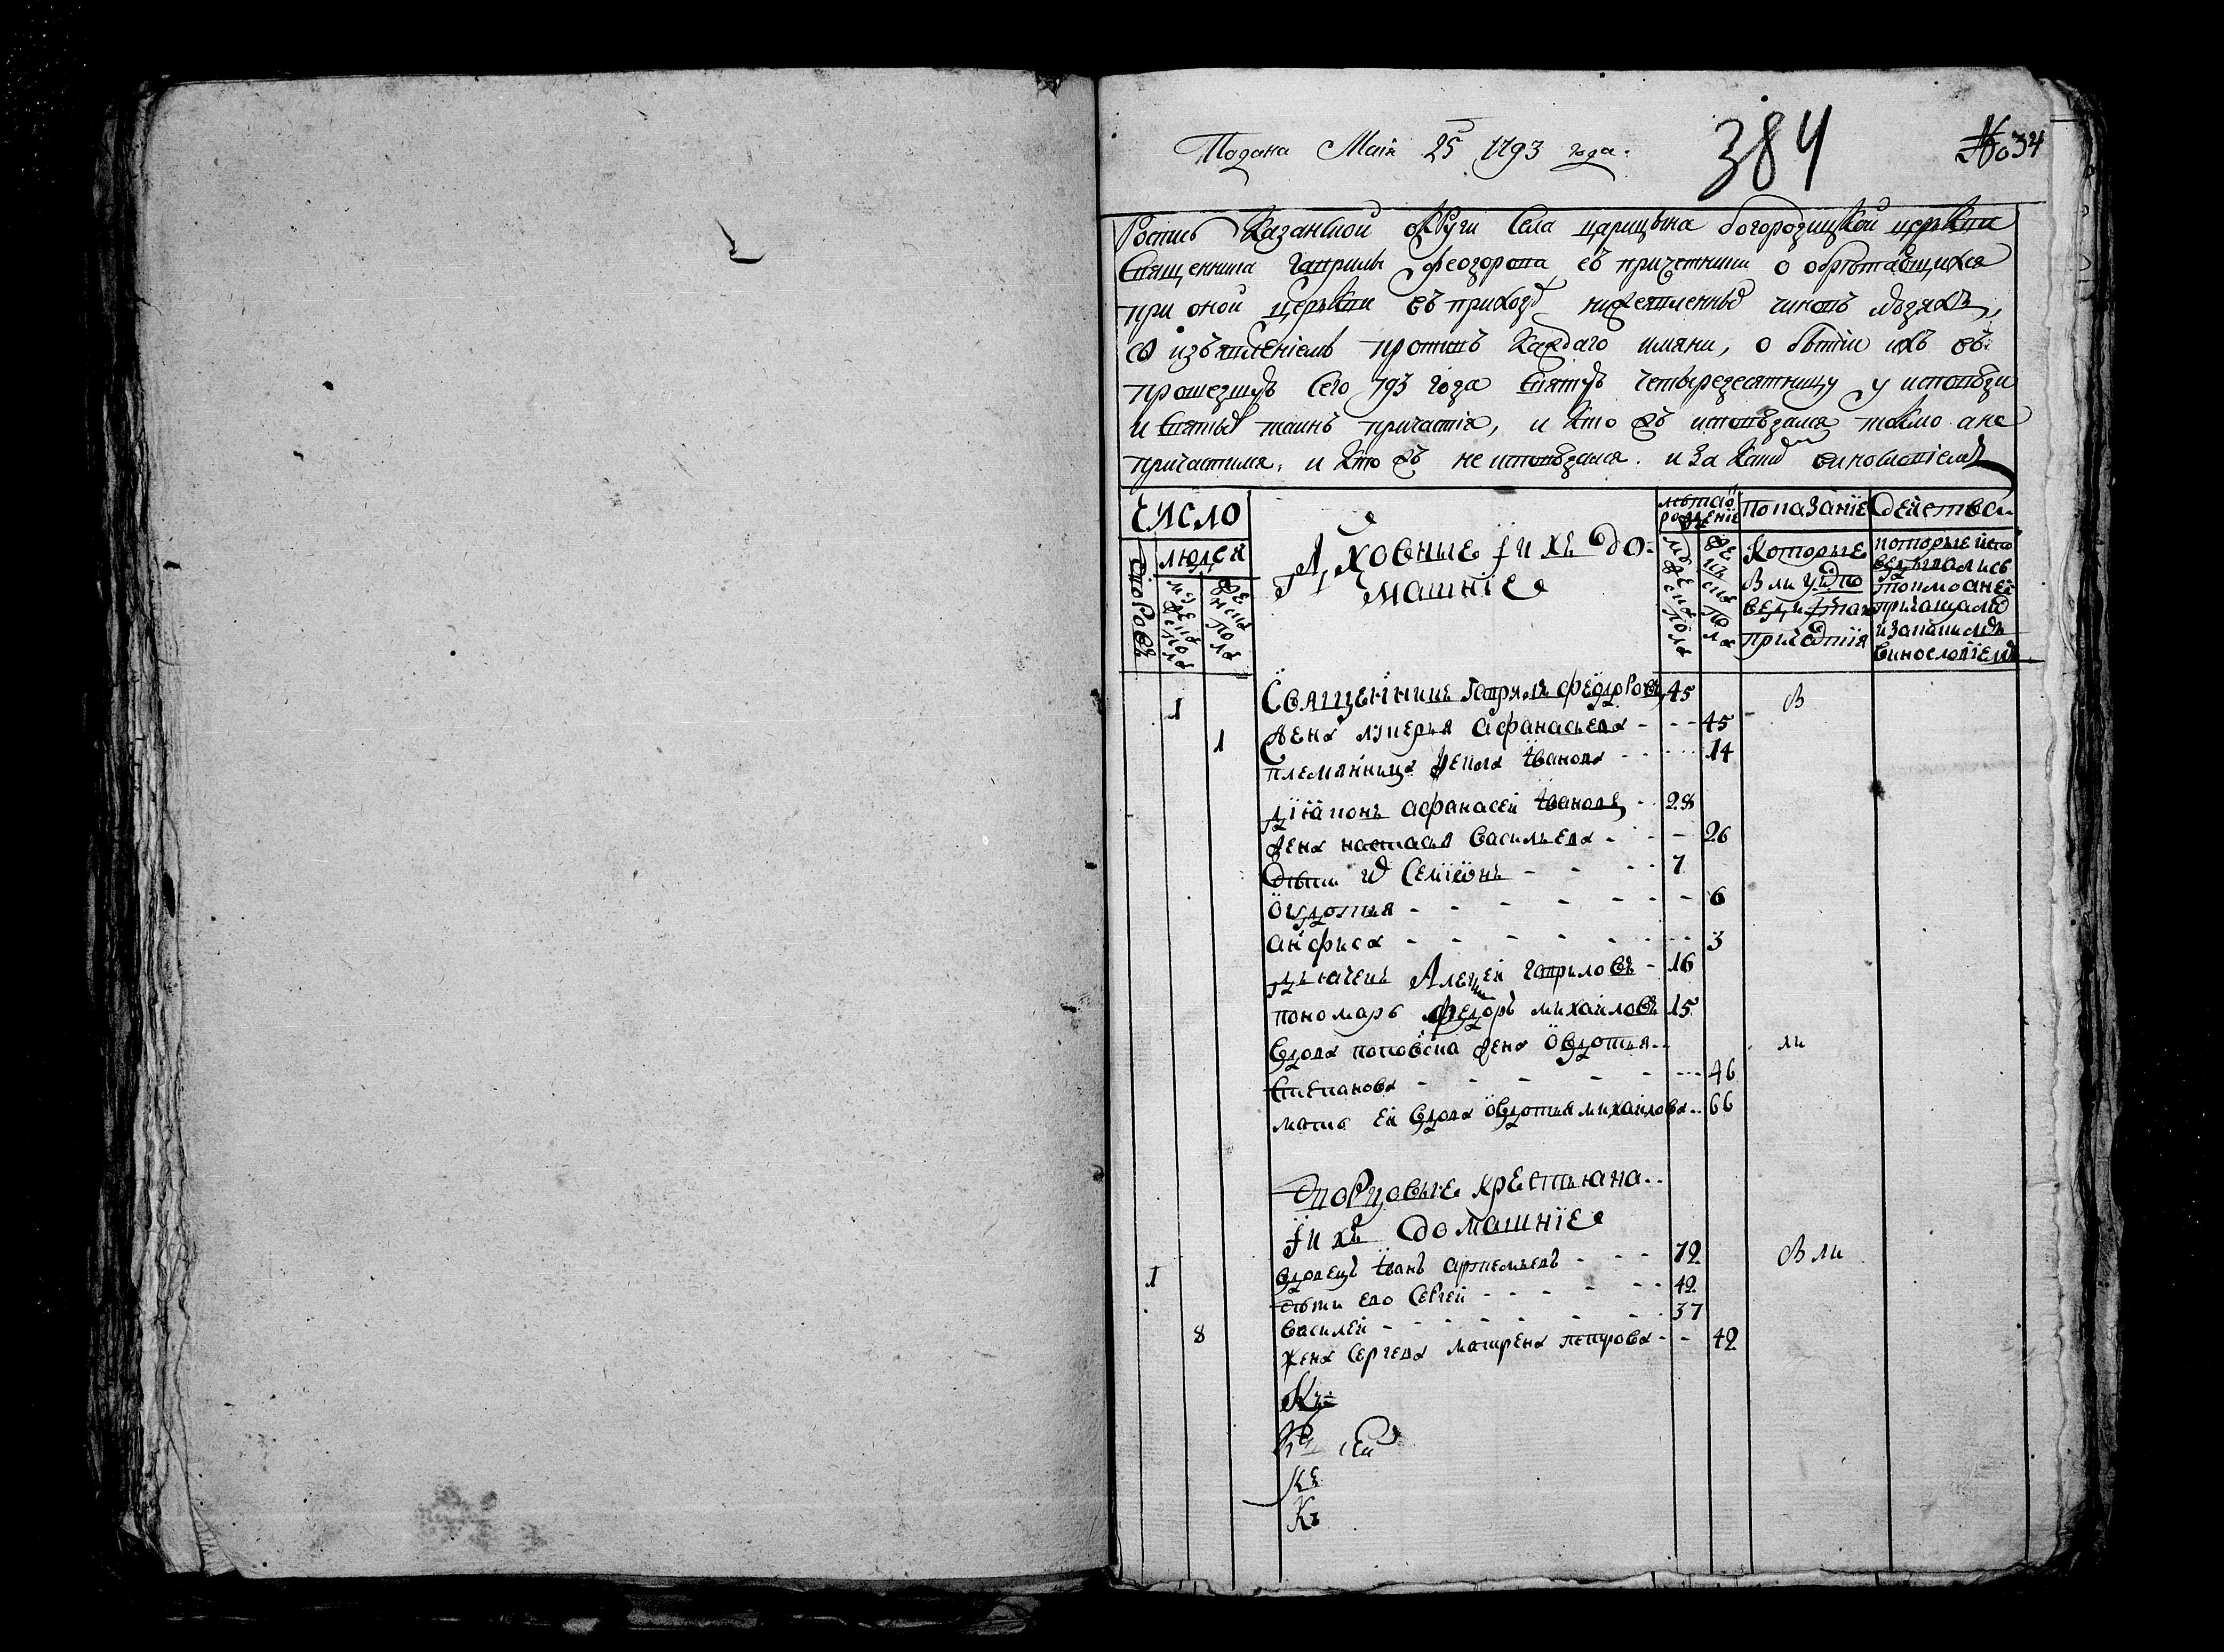 Подана Маія 25 1793 года.
384
№ 34
Роспись Казанской округи Села царицына богородицкой церькви
Священника гаврилы феодорова съ причетники о обрѣтающихся
при оной церькви въ приходѣ нижеявленныхъ чиновъ людяхъ,
со изъявленіемъ противъ каждаго имяни, о бытіи ихъ въ
прошедшую Сего 793 года Святую четыредесятницу у исповѣди
и Святыхъ таинъ причастія, и кто жъ исповѣдался токмо а не
причастился, и кто жъ не исповѣдался. и за какимъ винословіемъ
число
людей
дворовъ
мужеска пола
женска пола
Духовные и ихъ до-
машніе
лѣта о
рожденіе
мужеска пола
женска пола
показаніе
действа
Которые
были у испо
веди и свята
причастія
которые испо
ведались
токмо а не
причащали
и за какимъ
винословіемъ
1 Священникъ гаврилъ федоровъ 45 В
1 жена лукерья афанасьева 45
племянница фекла иванова 14
діаконъ афанасей ивановъ 28
жена настасья васильева 26
дѣти их Семіонъ 7
овдотья 6
анфиса 3
дьячекъ Алексей гавриловъ 16
пономарь федоръ михайловъ 15
вдова поповска жена овдотья ли
степанова 46
мать ей вдова овдотья михайлова 66
дворцовые крестьяна
и ихъ домашніе
1 вдовецъ иванъ артемьевъ 72 В ли
дѣти ево Сергей 42
василей 37
8 жена Сергева матрена петрова 42